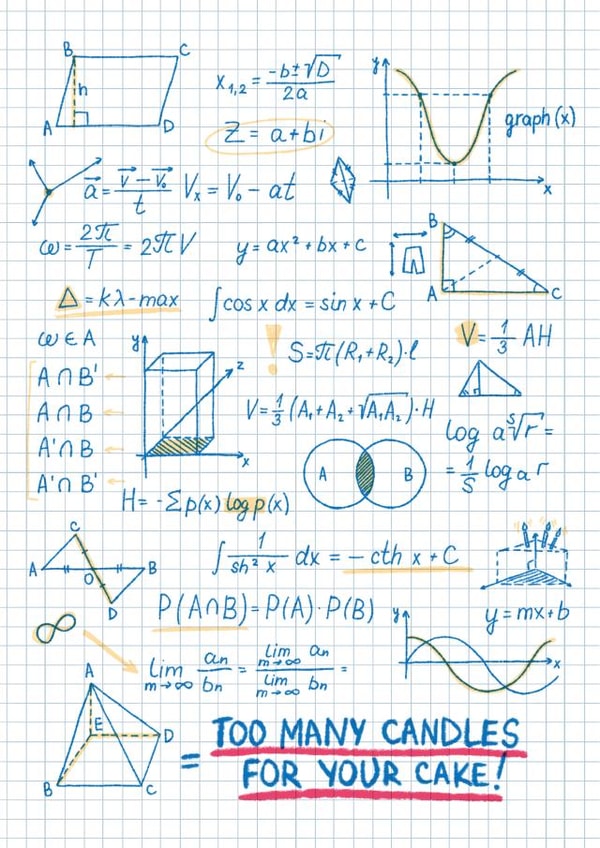 B C
h
A D
x₁,₂ = -b±√D / 2a
Z = a+bi
y
graph (x)
x
a⃗ = v⃗ - v⃗₀ / t
Vₓ = V₀ - at
ω = 2π / T = 2πV
y = ax² + bx + c
B
A C
Δ = kλ-max
∫cos x dx = sin x + C
ω ∈ A
A ∩ B'
A ∩ B
A' ∩ B
A' ∩ B'
y
z
x
!
S = π(R₁+R₂)·l
V = 1/3 AH
V = 1/3 (A₁+A₂+√A₁A₂)·H
log a ˢ√r =
= 1/S log a r
A B
H = -Σp(x) log p(x)
C
A O B
D
∫ 1 / sh² x dx = - cth x + C
P(A∩B) = P(A)·P(B)
y = mx+b
y
x
∞
Lim m→∞ an / bn = Lim m→∞ an / Lim m→∞ bn =
A
E D
B C
= TOO MANY CANDLES
FOR YOUR CAKE!